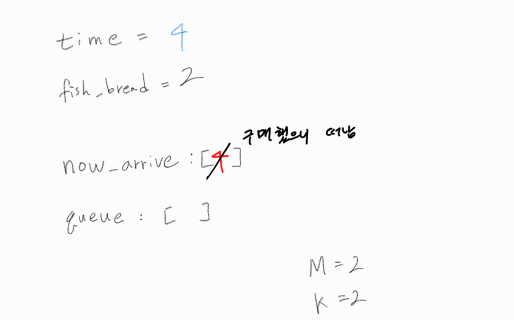 time = 4
fish_bread = 2
구매했으니 떠남
now_arrive : [4]
queue : [ ]
M = 2
K = 2